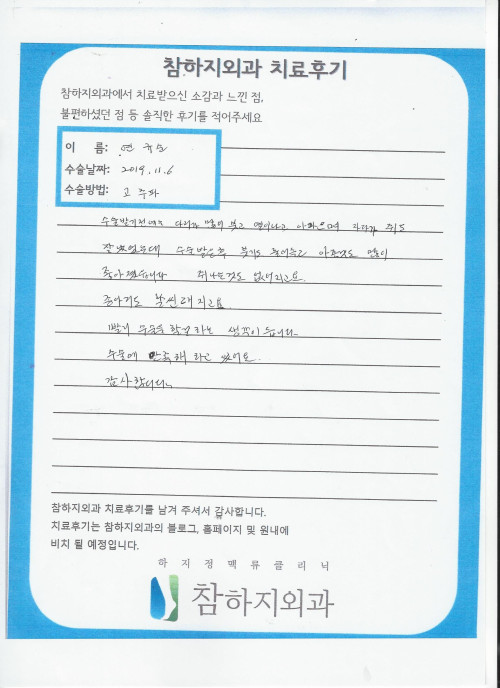 참하지외과 치료후기
참하지외과에서 치료받으신 소감과 느낀 점,
불편하셨던 점 등 솔직한 후기를 적어주세요
이 름: 연
수술날짜: 2019. 11. 6
수술방법: 고 주파
수술받기전에는 다리가 많이 붓고 열이나고 아팠으며 자다가 쥐도
잘 났었는데 수술받은후 붓기도 줄어들고 아픈것도 많이
좋아졌습니다 쥐나는것도 없어지고요.
종아리도 날씬해 지고요.
빨리 수술을 할걸 하는 생각이 듭니다.
수술에 만족해 하고 있어요.
감사합니다.
참하지외과 치료후기를 남겨 주셔서 감사합니다.
치료후기는 참하지외과의 블로그, 홈페이지 및 원내에
비치 될 예정입니다.
하지정맥류클리닉
참하지외과